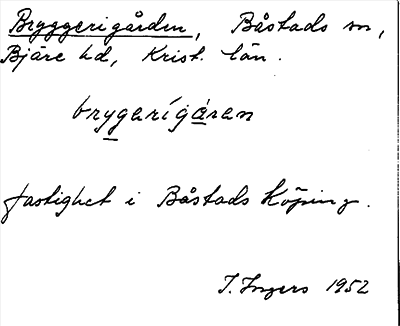 Bryggerigården, Båstads sn,
Bjäre hd, Krist. län.
brygerígáren
fastighet i Båstads Köping.
I. Ingers 1952